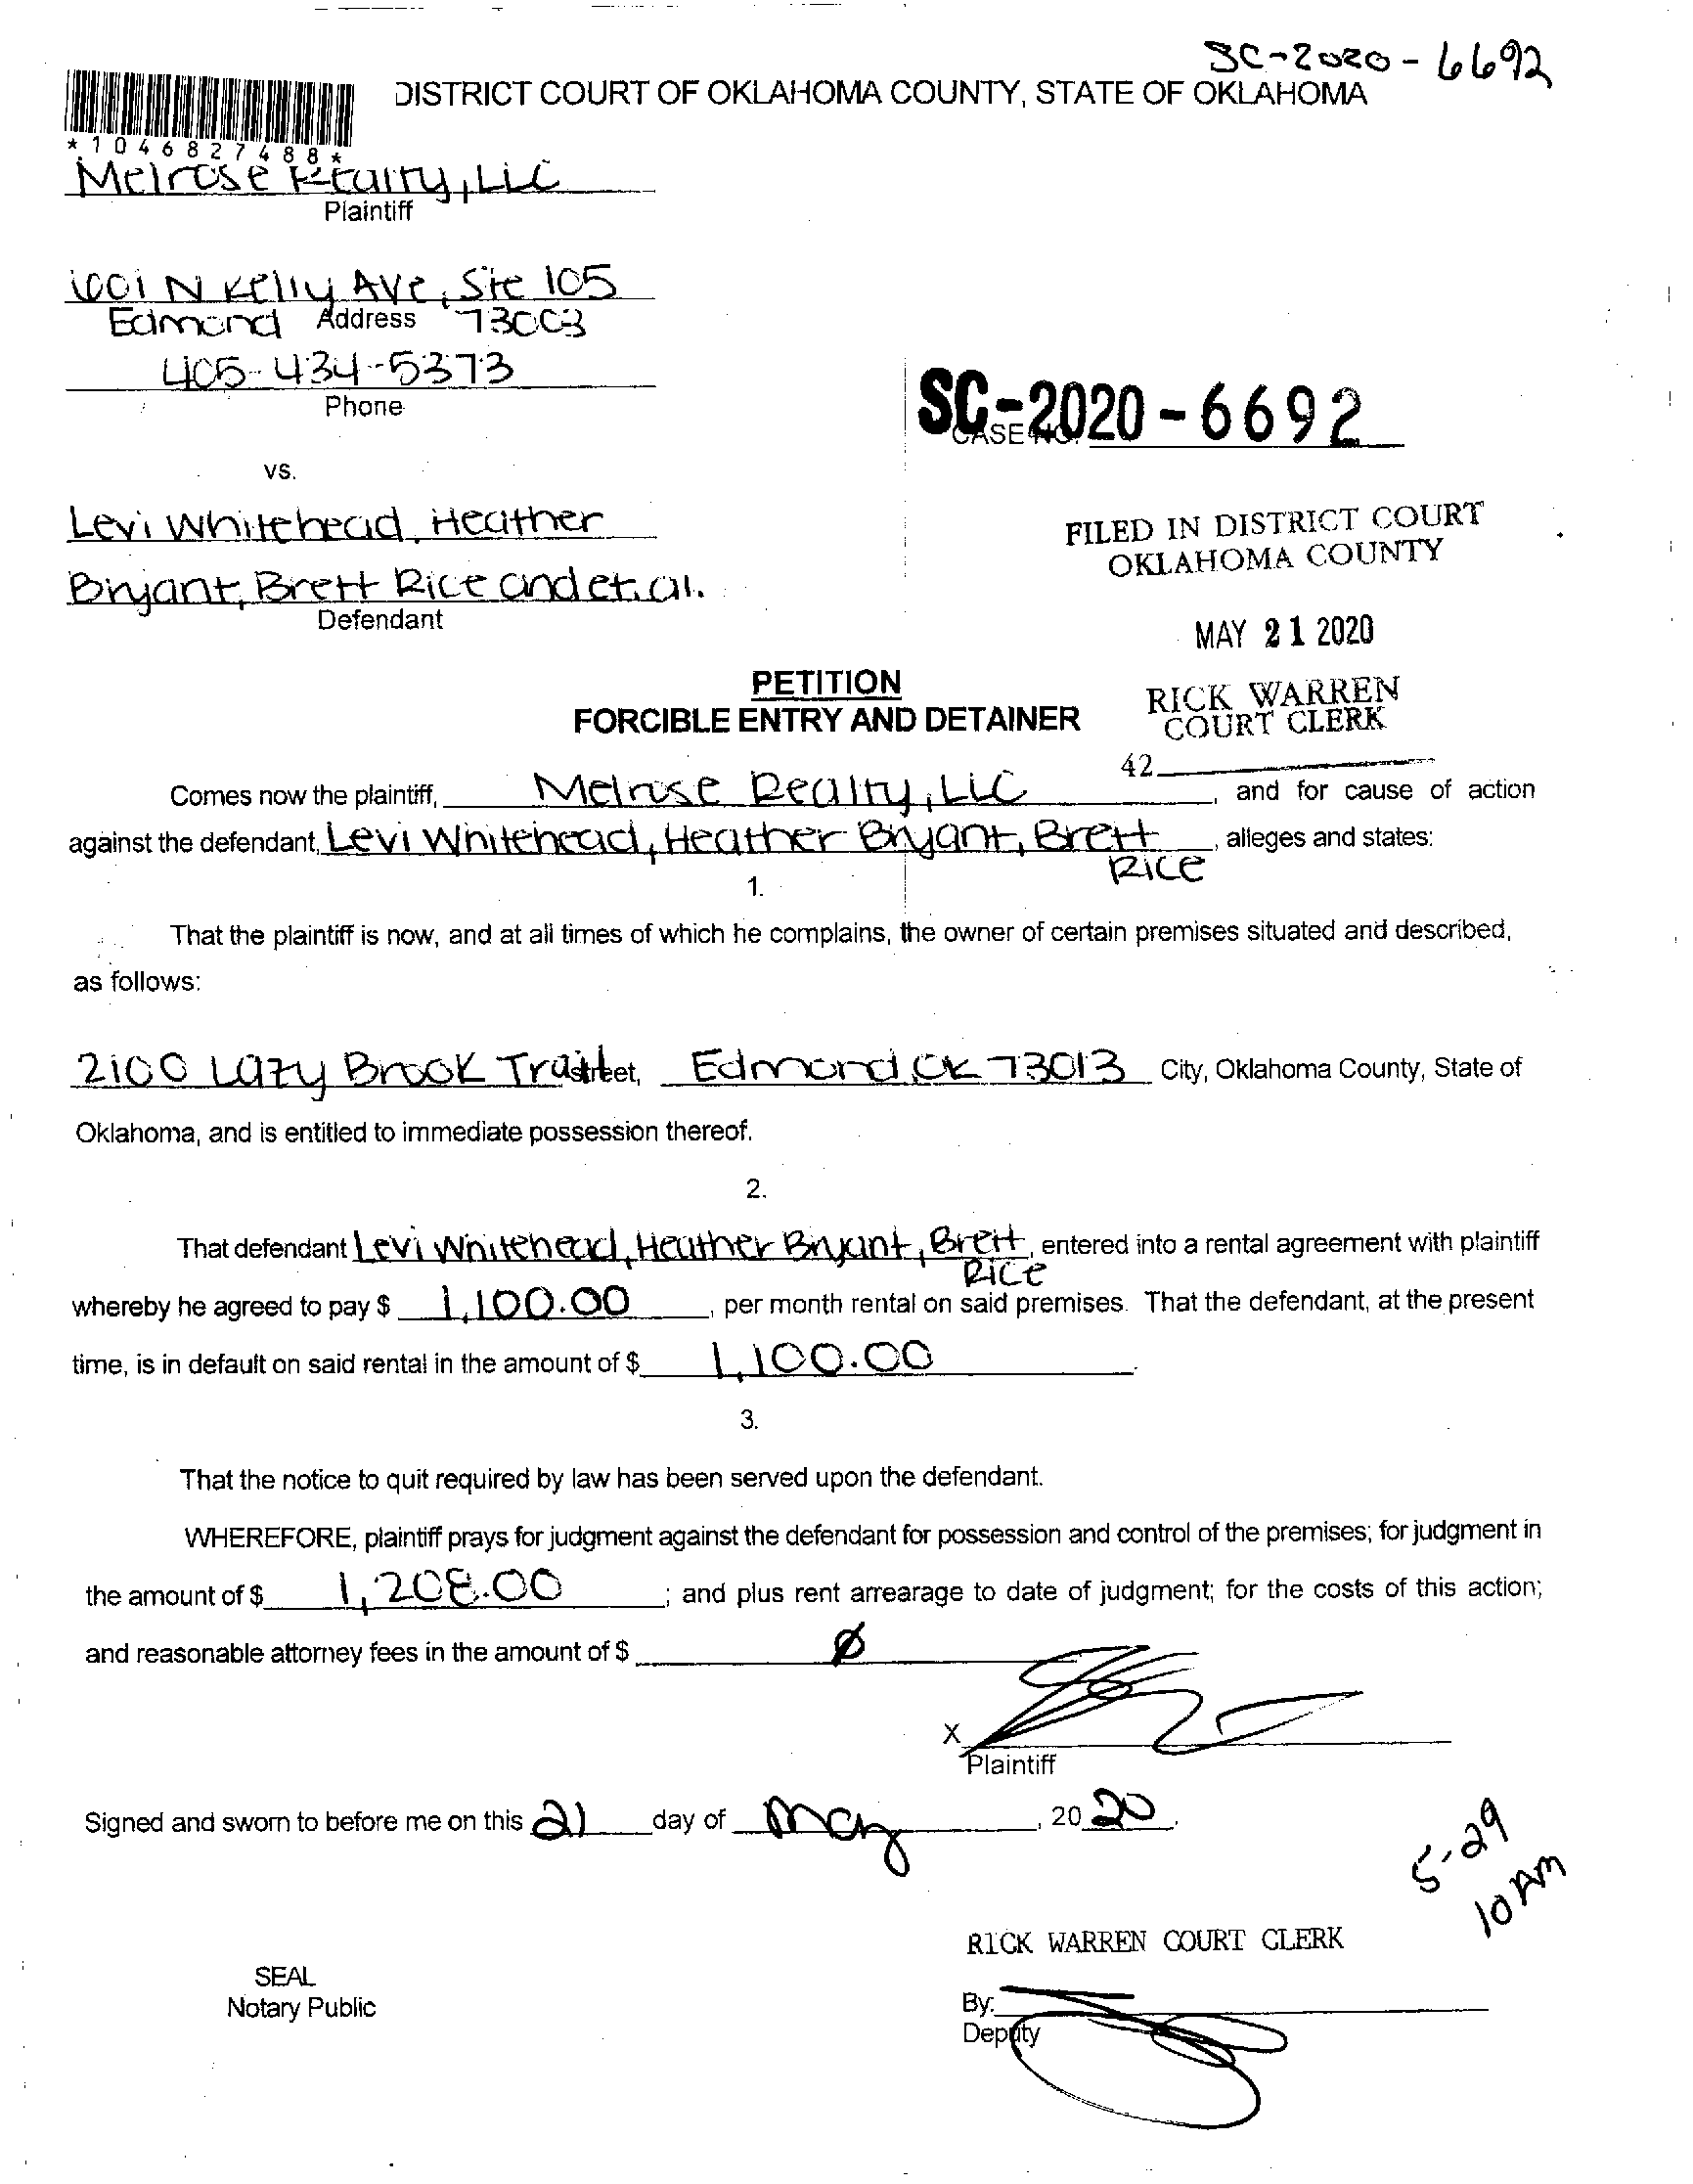 SC-2020-6692
DISTRICT COURT OF OKLAHOMA COUNTY, STATE OF OKLAHOMA
*1046827488*
Melrose Realty, LLC
Plaintiff
1001 N Kelly Ave, Ste 105
Edmond Address 73003
405-434-5373
Phone
SC-2020-6692
CASE NO.
vs.
Levi Whitehead, Heather
Bryant, Brett Rice and et. al.
Defendant
FILED IN DISTRICT COURT
OKLAHOMA COUNTY
MAY 21 2020
RICK WARREN
COURT CLERK
42
PETITION
FORCIBLE ENTRY AND DETAINER
Comes now the plaintiff, Melrose Realty, LLC, and for cause of action
against the defendant, Levi Whitehead, Heather Bryant, Brett Rice, alleges and states:
1.
That the plaintiff is now, and at all times of which he complains, the owner of certain premises situated and described,
as follows:
2100 Lazy Brook Trail street, Edmond, OK 73013 City, Oklahoma County, State of
Oklahoma, and is entitled to immediate possession thereof.
2.
That defendant Levi Whitehead, Heather Bryant, Brett Rice, entered into a rental agreement with plaintiff
whereby he agreed to pay $ 1,100.00, per month rental on said premises. That the defendant, at the present
time, is in default on said rental in the amount of $ 1,100.00.
3.
That the notice to quit required by law has been served upon the defendant.
WHEREFORE, plaintiff prays for judgment against the defendant for possession and control of the premises; for judgment in
the amount of $ 1,208.00; and plus rent arrearage to date of judgment; for the costs of this action;
and reasonable attorney fees in the amount of $ Ø
X
Plaintiff
Signed and sworn to before me on this 21 day of May, 2020.
5-29
10 AM
RICK WARREN COURT CLERK
SEAL
Notary Public
By:
Deputy